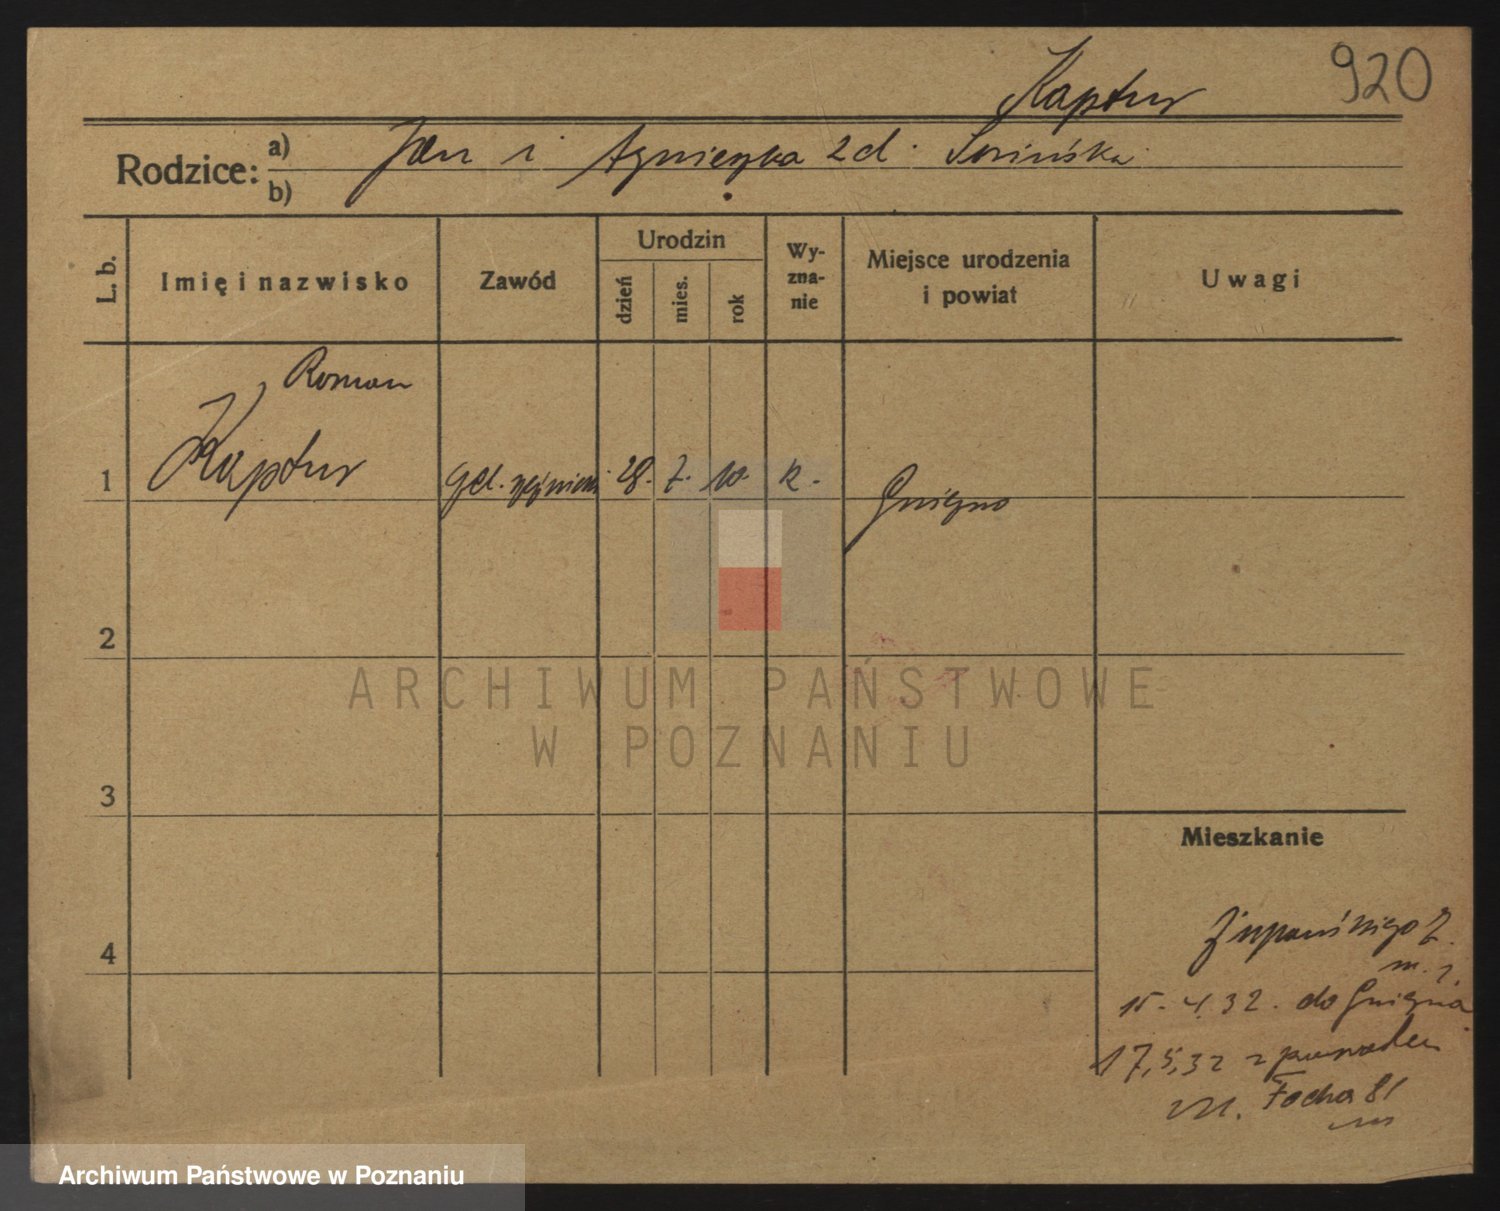 920
Kaptur
Rodzice: a) Jan i Agnieszka zd. Sosińska
b)
L. b.
Imię i nazwisko
Zawód
Urodzin
dzień
mies.
rok
Wy-
zna-
nie
Miejsce urodzenia
i powiat
Uwagi
Roman
1 Kaptur 28. 7. 10. k. Gniezno
2
3
4
ARCHIWUM PAŃSTWOWE
W POZNANIU
Mieszkanie
Żupańskiego 7.
15. 4. 32. do Gniezna
17,5,32 z powrotem
Focha 81
Archiwum Państwowe w Poznaniu